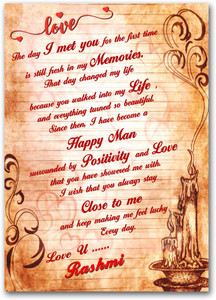 love
The day I met you for the first time
is still fresh in my Memories.
That day changed my life
because you walked into my Life ,
and everything turned so beautiful.
Since then, I have become a
Happy Man
surrounded by Positivity and Love
that you have showered me with.
I wish that you always stay
Close to me
and keep making me feel lucky
Every day.
Love U ......
Rashmi